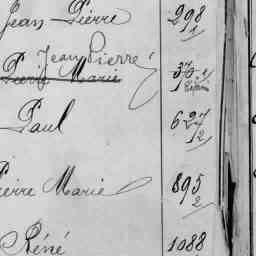 Jean Pierre 298
1
Jean Pierre
Pierre Marie 376
Paul 627
2
Pierre Marie 895
2
Réné 1088